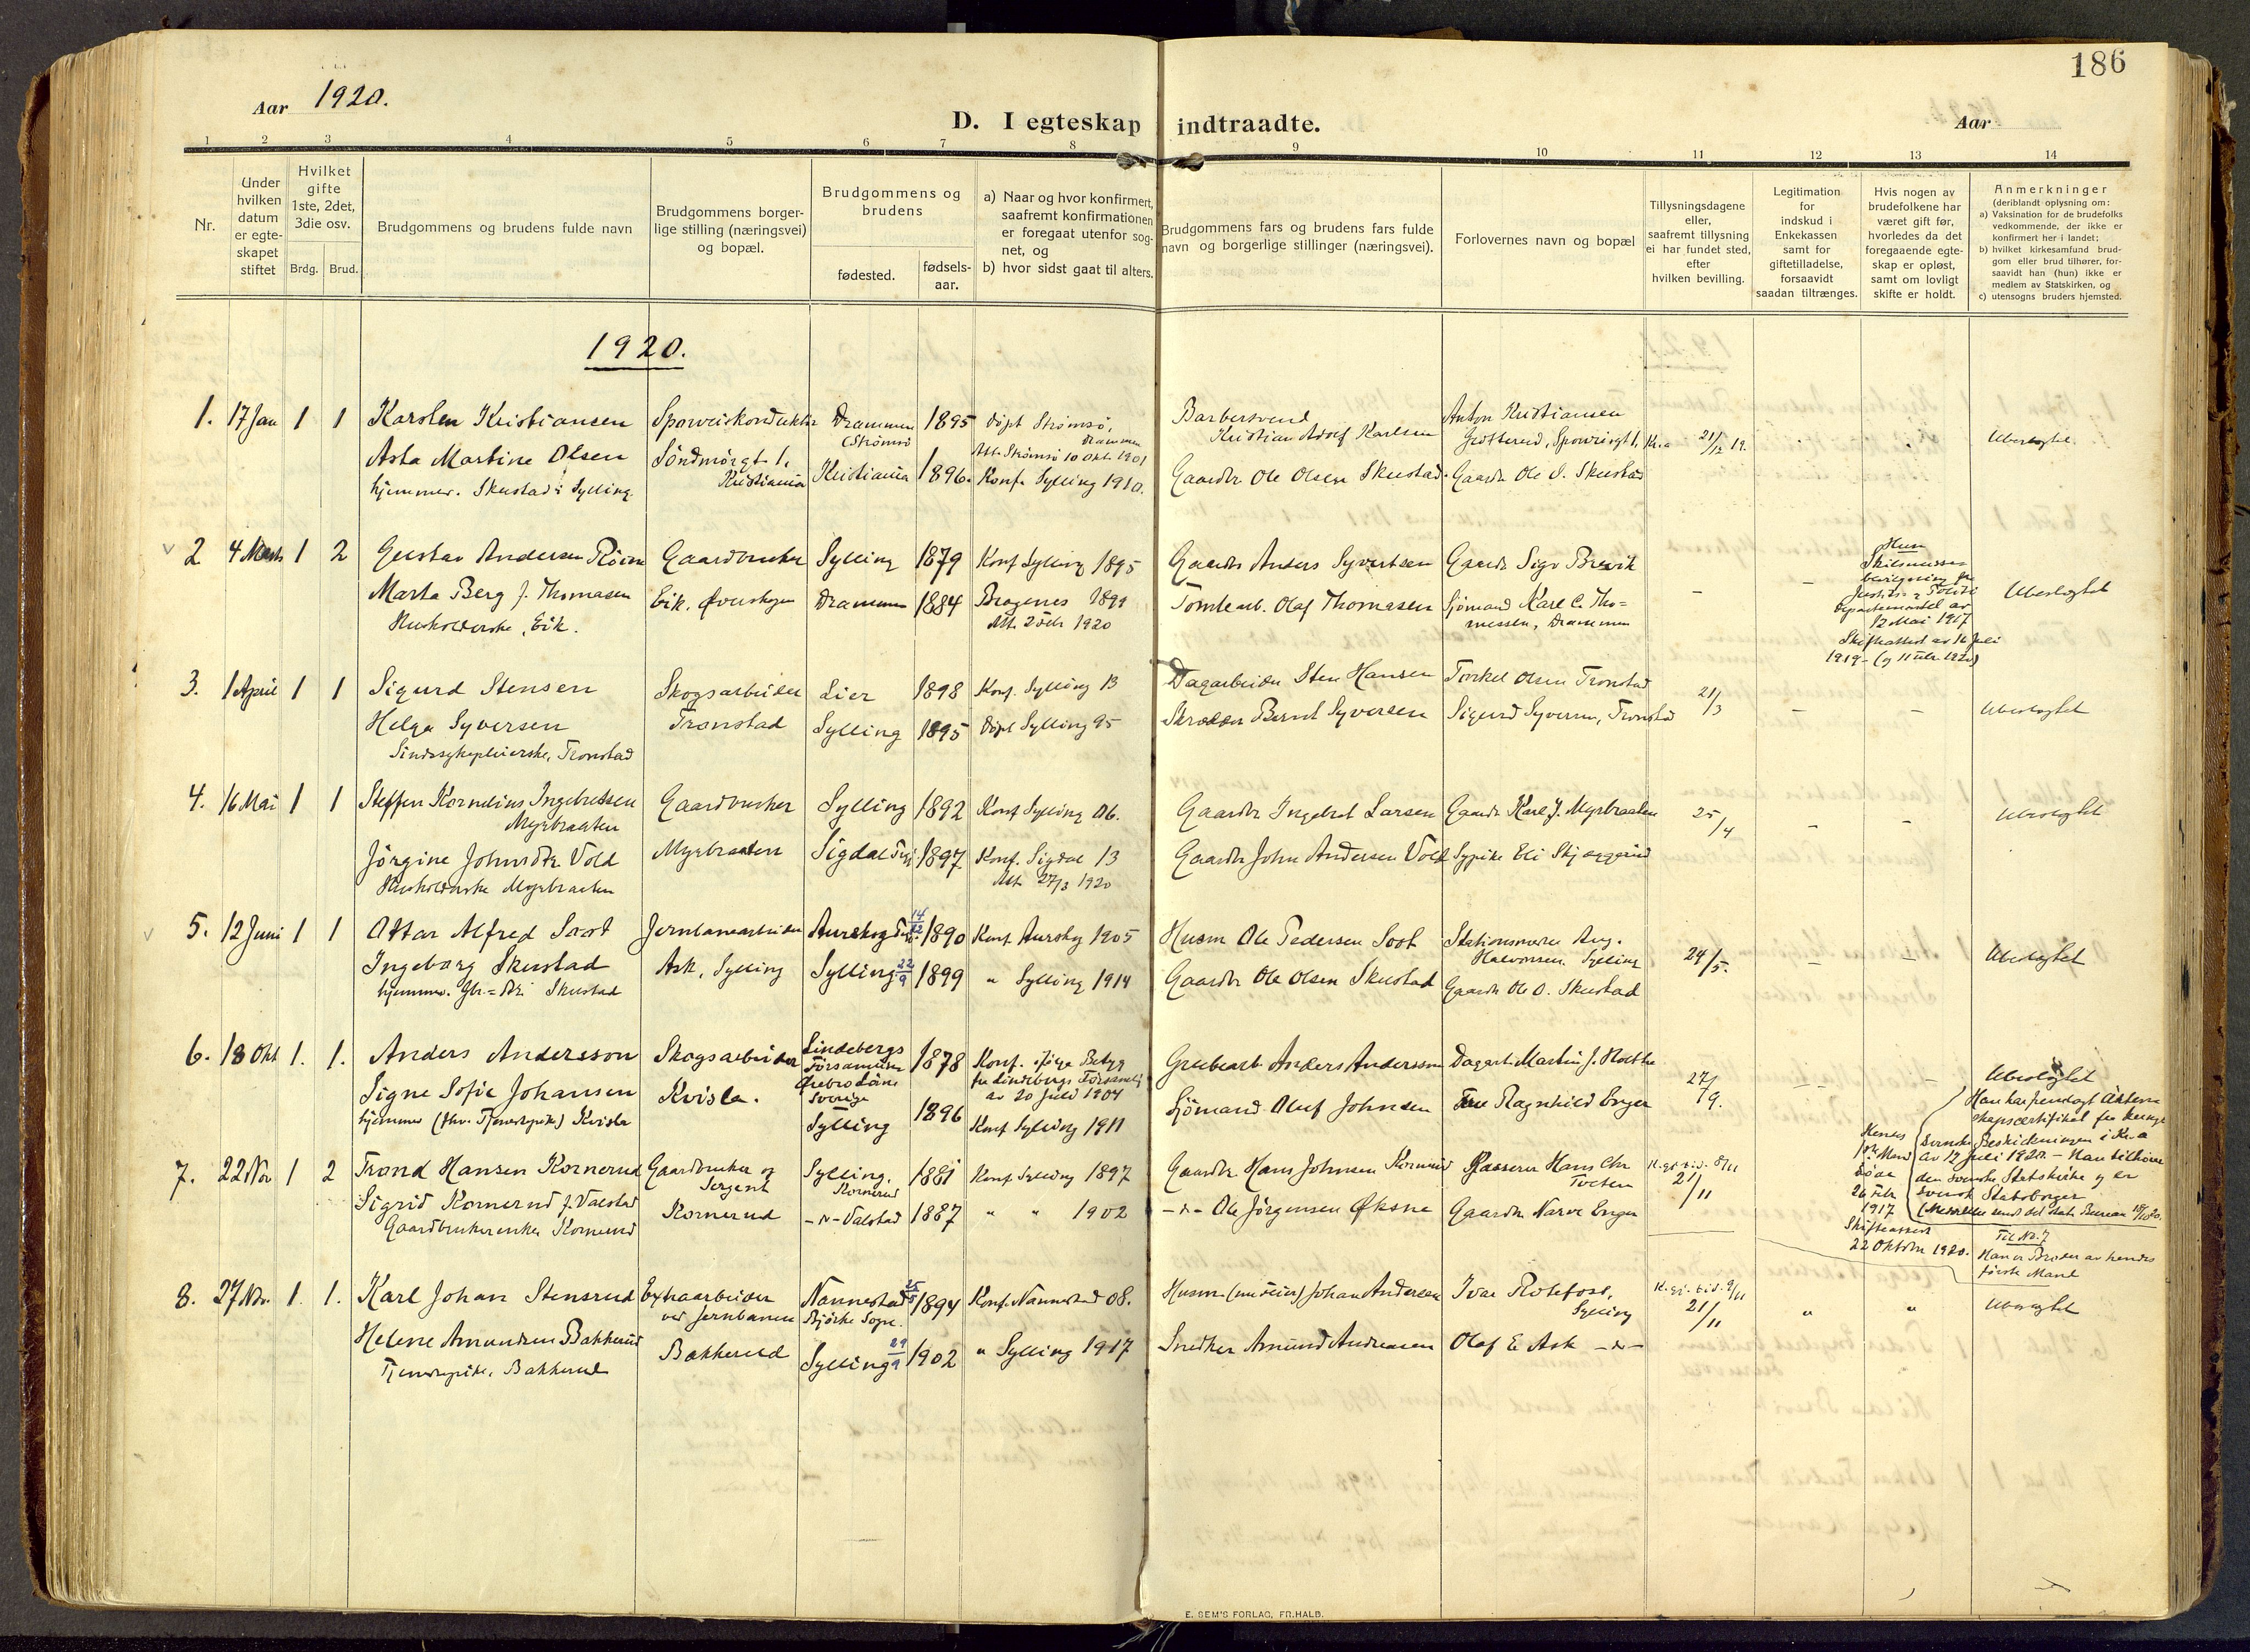 186
Aar 1920.
D. I egteskap indtraadte.
Aar
1 2 3 4 5 6 7 8 9 10 11 12 13 14
Nr.
Under hvilken datum er egte- skapet stiftet
Hvilket gifte 1ste, 2det, 3die osv.
Brdg. Brud.
Brudgommens og brudens fulde navn
Brudgommens borger- lige stilling (næringsvei) og bopæl.
Brudgommens og brudens
fødested.
fødsels- aar.
a) Naar og hvor konfirmert, saafremt konfirmationen er foregaat utenfor sog- net, og
b) hvor sidst gaat til alters.
Brudgommens fars og brudens fars fulde navn og borgerlige stillinger (næringsvei).
Forlovernes navn og bopæl
Tillysningsdagene eller, saafremt tillysning ei har fundet sted, efter hvilken bevilling.
Legitimation for indskud i Enkekassen samt for giftetilladelse, forsaavidt saadan tiltrænges.
Hvis nogen av brudefolkene har været gift før, hvorledes da det foregaaende egte- skap er opløst, samt om lovligt skifte er holdt.
Anmerkninger
(deriblandt oplysning om:
a) Vaksination for de brudefolks vedkommende, der ikke er konfirmert her i landet;
b) hvilket kirkesamfund brud- gom eller brud tilhører, for- saavidt han (hun) ikke er medlem av Statskirken, og
c) utensogns bruders hjemsted.
1920.
1. 17 Jan 1 1 Karsten Kristiansen Sporveiskonduktør Drammen (Strømsö 1895 döpt Strømsö, Drammen Alt. Strømsö 10 Okt. 1901 Barbersvend Kristian Adolf Karlsen Anton Kristiansen Grøtterud, Sporveisgt 1, Kr.a 21/12 19. Ubeslegtet.
Asta Martine Olsen Söndmörgt. 1, Kristiania Kristiania 1896. Konf. Sylling 1910. Gaardbr Ole Olsen Skustad. Gaardbr Ole O. Skustad
hjemmev. Skustad i Sylling.
2 4 Marts 1 2 Gustav Andersen Gaardbruker Sylling 1879 Konf Sylling 1895 Gaardbr Anders Syvertsen Gaardb Sigv Brevik - - Ubeslegtet
Marta Berg f. Thomasen Eik, Øverskogen Drammen 1884 Bragenes 1899 Alt. 2 Febr 1920 Tomtearb. Olaf Thomasen Sjömand Karl C. Tho= massen, Drammen
Husholderske, Eik.
Hun Skilsmisse bevilgning fra Justits- & Politi Departementet av 12 Mai 1917
Skifteattest av 14 Juli 1919 - (og 11 Febr 1920)
3. 1 April 1 1 Sigurd Stensen Skogsarbeider Lier 1898 Konf. Sylling 13 Dagarbeider Sten Hansen Torkel Olsen Tronstad 21/3 - - Ubeslegtet
Helga Syversen Tronstad Sylling 1895 döpt Sylling 95 Skrædder Bernt Syversen Sigurd Syversen, Tronstad
Sindssykepleierske, Tronstad
4. 16 Mai 1 1 Steffen Kornelius Ingebretsen Myrbraaten Gaardbruker Sylling 1892 Konf Sylling 06. Gaardbr Ingebret Larsen Gaardb Karl J. Myrbraaten 25/4 - - Ubeslegtet
Jörgine Johnsdtr Vold Myrbraaten Sigdal 1897 Konf. Sigdal 13 Alt. 27/3 1920 Gaardbr John Andersen Vold Sypike Eli Skjæggerud
Husholderske Myrbraaten
5. 12 Juni 1 1 Ottar Alfred Soot Jernbanearbeider Aurskog 14/12 1890 Konf Aurskog 1905 Husm Ole Pedersen Soot Stationsmester Aug. Halvorsen Sylling 24/5. - - Ubeslegtet
Ingeborg Skustad Ask, Sylling Sylling 22/9 1899 " Sylling 1914 Gaardbr Ole Olsen Skustad Gaardbr Ole O. Skustad
hjemmev. Gbr.=dtr. Skustad
6. 18 Okt 1. 1. Anders Andersson Skogsarbeider Lindebergs Församling Örebro Läne Sverige 1878 Konf. ifölge Betyg fra Lindebergs Församling av 20 Juli 1904 Grubearb Anders Andersson Dagarb. Martin J. Holthe 27/9. - - - Ubeslegtet
Signe Sofie Johansen Kvisla. Sylling 1896 Konf Sylling 1911 Sjömand Oluf Johnsen Frue Ragnhild Enger
hjemmev (fhv. Tjenestepike) Kvisla
Han har fremlagt Äkten- skapscertifikat fra kungl. svenska Beskickningen i Kr.a av 17 Juli 1920 - Han tilhörer den svenske Statskirke og er svensk Statsborger
(Meddelelse sendt det stat. Bureau 18/10 20.
7. 22 Nov 1 2 Trond Hansen Kornerud Gaardbruker og Sergent Sylling, Kornerud 1881 Konf Sylling 1897 Gaardbr Hans Johnsen Kornerud Kasserer Hans Chr Tveten 21/11
Sigrid Kornerud f. Valstad Kornerud -"- Valstad 1887 " " 1902 -"- Ole Jörgensen Øksne Gaardbr Narve Enger
Gaardbrukerenke Kornerud
Hendes 1ste Mand döde 26 Febr 1917 Skifteattest 22 Oktober 1920.
Til No. 7 Han er Broder av hendes förste Mand
8. 27 Nov. 1. 1. Karl Johan Stensrud Extraarbeider ved Jernbanen Nannestad Bjørke Sogn. 25/5 1894 Konf. Nannestad 08. Husm (nu eier) Johan Andersen Ivar Rolefost, Sylling 21/11 " " Ubeslegtet
Helene Amundsen Bakkerud Bakkerud Sylling 29/9 1902 " Sylling 1917 Snedker Amund Andreasen Olaf E Ask -"-
Tjenestepike, Bakkerud
E. SEM'S FORLAG, FR.HALD.